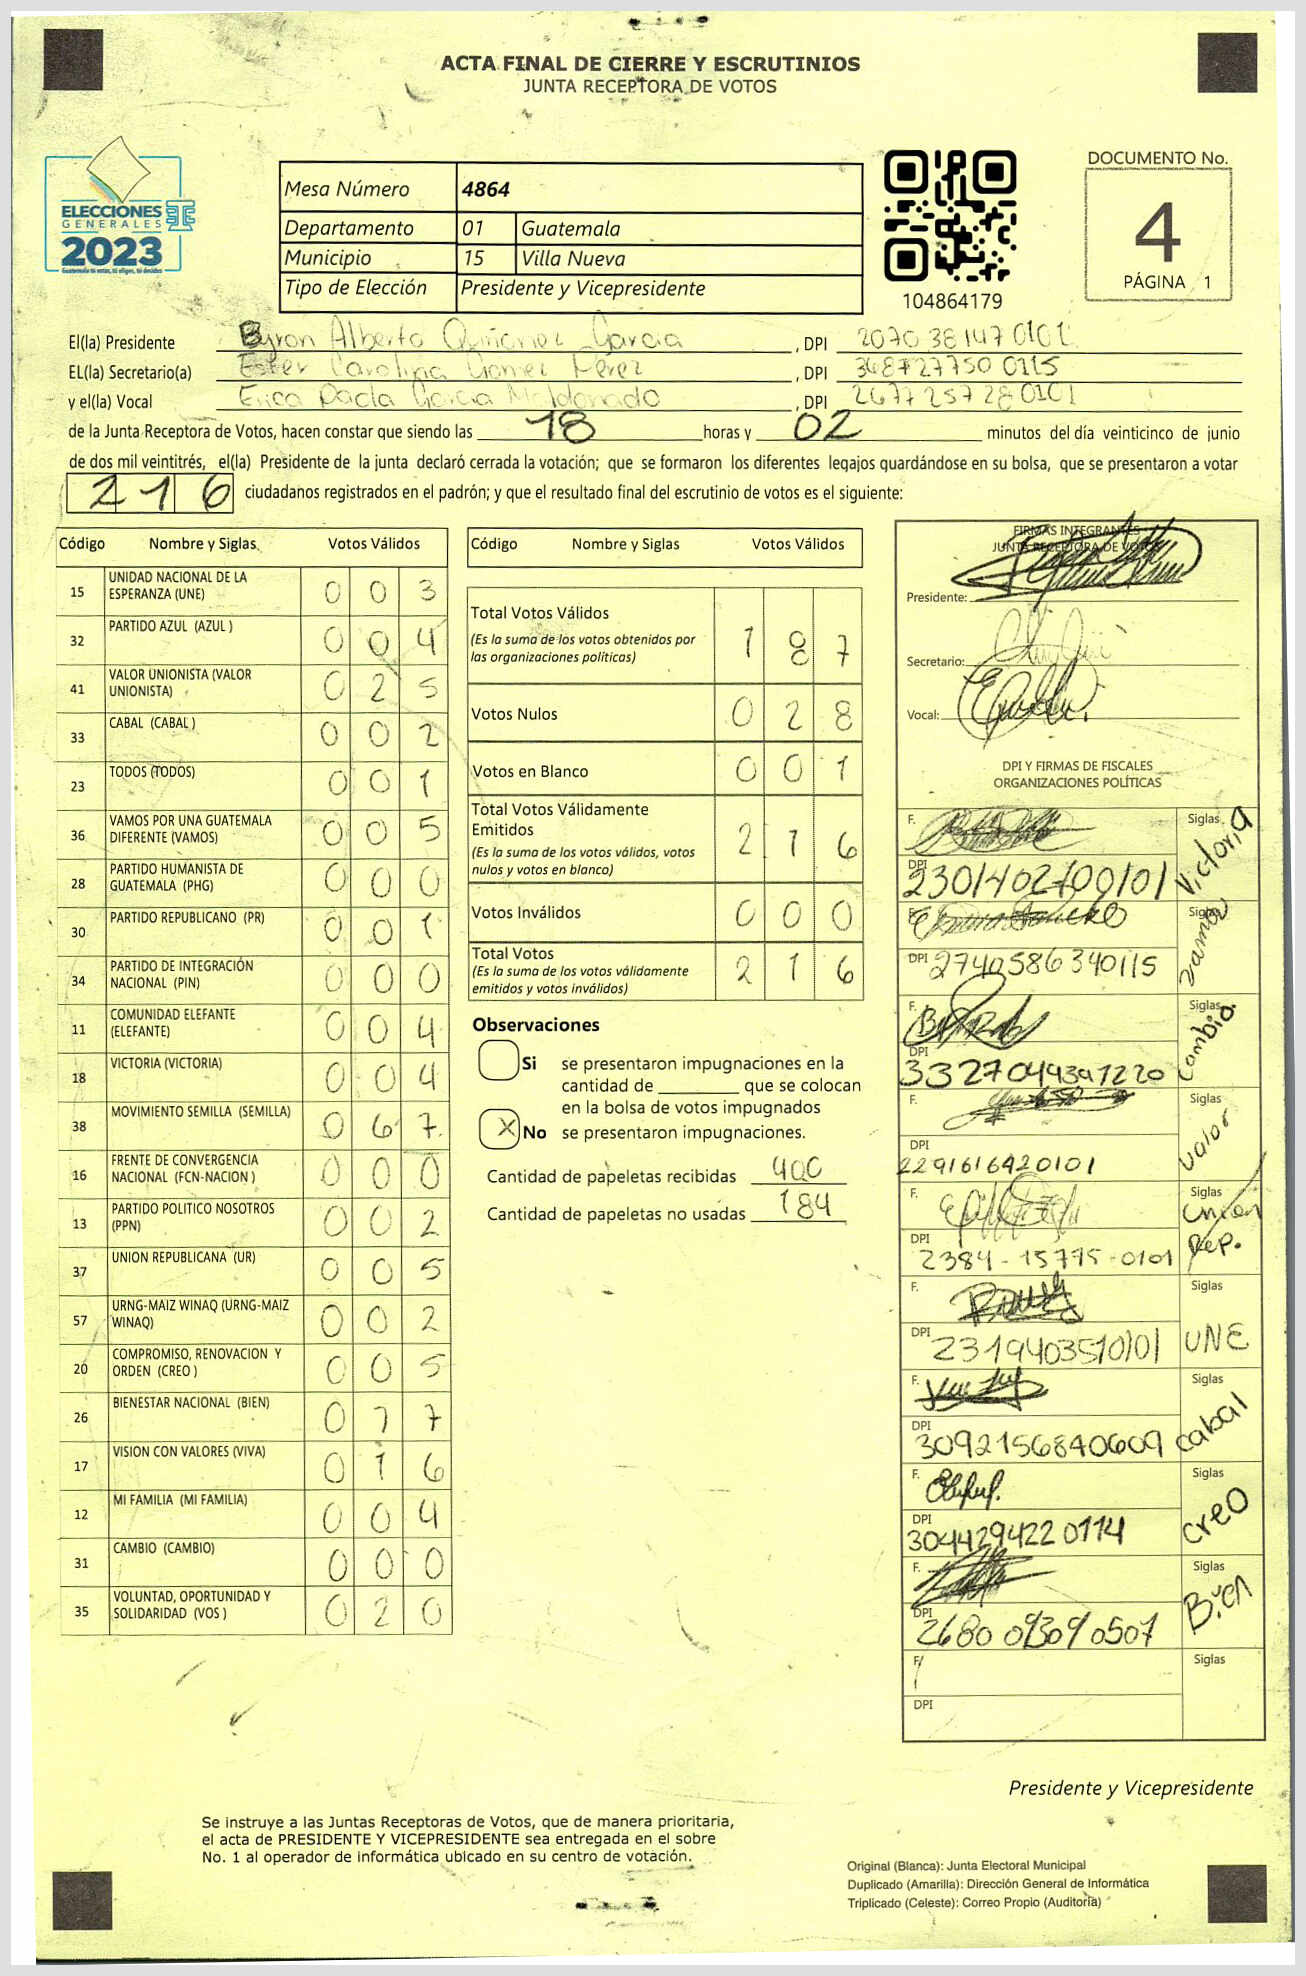 ACTA FINAL DE CIERRE Y ESCRUTINIOS
JUNTA RECEPTORA DE VOTOS
ELECCIONES
GENERALES
2023
Guatemala tú votas, tú eliges, tú decides
Mesa Número 4864
Departamento 01 Guatemala
Municipio 15 Villa Nueva
Tipo de Elección Presidente y Vicepresidente
104864179
DOCUMENTO No.
4
PÁGINA 1
El(la) Presidente Byron Alberto Quiñonez Garcia, DPI 2070 38147 0101
EL(la) Secretario(a) Ester Carolina Gomez Perez, DPI 368727750 0115
y el(la) Vocal Erica Paola Garcia Maldonado, DPI 2677 257 28 0101
de la Junta Receptora de Votos, hacen constar que siendo las 18 horas y 02 minutos del día veinticinco de junio
de dos mil veintitrés, el(la) Presidente de la junta declaró cerrada la votación; que se formaron los diferentes legajos guardándose en su bolsa, que se presentaron a votar
216 ciudadanos registrados en el padrón; y que el resultado final del escrutinio de votos es el siguiente:
Código Nombre y Siglas Votos Válidos
15 UNIDAD NACIONAL DE LA ESPERANZA (UNE) 0 0 3
32 PARTIDO AZUL (AZUL ) 0 0 4
41 VALOR UNIONISTA (VALOR UNIONISTA) 0 2 5
33 CABAL (CABAL ) 0 0 2
23 TODOS (TODOS) 0 0 1
36 VAMOS POR UNA GUATEMALA DIFERENTE (VAMOS) 0 0 5
28 PARTIDO HUMANISTA DE GUATEMALA (PHG) 0 0 0
30 PARTIDO REPUBLICANO (PR) 0 0 1
34 PARTIDO DE INTEGRACIÓN NACIONAL (PIN) 0 0 0
11 COMUNIDAD ELEFANTE (ELEFANTE) 0 0 4
18 VICTORIA (VICTORIA) 0 0 4
38 MOVIMIENTO SEMILLA (SEMILLA) 0 6 7
16 FRENTE DE CONVERGENCIA NACIONAL (FCN-NACION ) 0 0 0
13 PARTIDO POLITICO NOSOTROS (PPN) 0 0 2
37 UNION REPUBLICANA (UR) 0 0 5
57 URNG-MAIZ WINAQ (URNG-MAIZ WINAQ) 0 0 2
20 COMPROMISO, RENOVACION Y ORDEN (CREO ) 0 0 5
26 BIENESTAR NACIONAL (BIEN) 0 1 7
17 VISION CON VALORES (VIVA) 0 1 6
12 MI FAMILIA (MI FAMILIA) 0 0 4
31 CAMBIO (CAMBIO) 0 0 0
35 VOLUNTAD, OPORTUNIDAD Y SOLIDARIDAD (VOS ) 0 2 0
Código Nombre y Siglas Votos Válidos
Total Votos Válidos 1 8 7
(Es la suma de los votos obtenidos por
las organizaciones políticas)
Votos Nulos 0 2 8
Votos en Blanco 0 0 1
Total Votos Válidamente
Emitidos 2 1 6
(Es la suma de los votos válidos, votos
nulos y votos en blanco)
Votos Inválidos 0 0 0
Total Votos 2 1 6
(Es la suma de los votos válidamente
emitidos y votos inválidos)
Observaciones
Si se presentaron impugnaciones en la
cantidad de ________ que se colocan
en la bolsa de votos impugnados
X No se presentaron impugnaciones.
Cantidad de papeletas recibidas 400
Cantidad de papeletas no usadas 184
FIRMAS INTEGRANTES
JUNTA RECEPTORA DE VOTOS
Presidente:
Secretario:
Vocal:
DPI Y FIRMAS DE FISCALES
ORGANIZACIONES POLÍTICAS
F. Siglas Victoria
DPI 2301402700101
F. Siglas
DPI 2740586340115
F. Siglas Cambio.
DPI 3327049391220
F. Siglas Valor
DPI 2291616420101
F. Siglas Unión Rep.
DPI 2384-15775-0101
F. Siglas UNE
DPI 2319403510101
F. Siglas cabal
DPI 3092156840609
F. Siglas creo
DPI 3044294220114
F. Siglas Bien
DPI 2680 09309 0507
F. Siglas
DPI
Presidente y Vicepresidente
Se instruye a las Juntas Receptoras de Votos, que de manera prioritaria,
el acta de PRESIDENTE Y VICEPRESIDENTE sea entregada en el sobre
No. 1 al operador de informática ubicado en su centro de votación.
Original (Blanca): Junta Electoral Municipal
Duplicado (Amarilla): Dirección General de Informática
Triplicado (Celeste): Correo Propio (Auditoría)